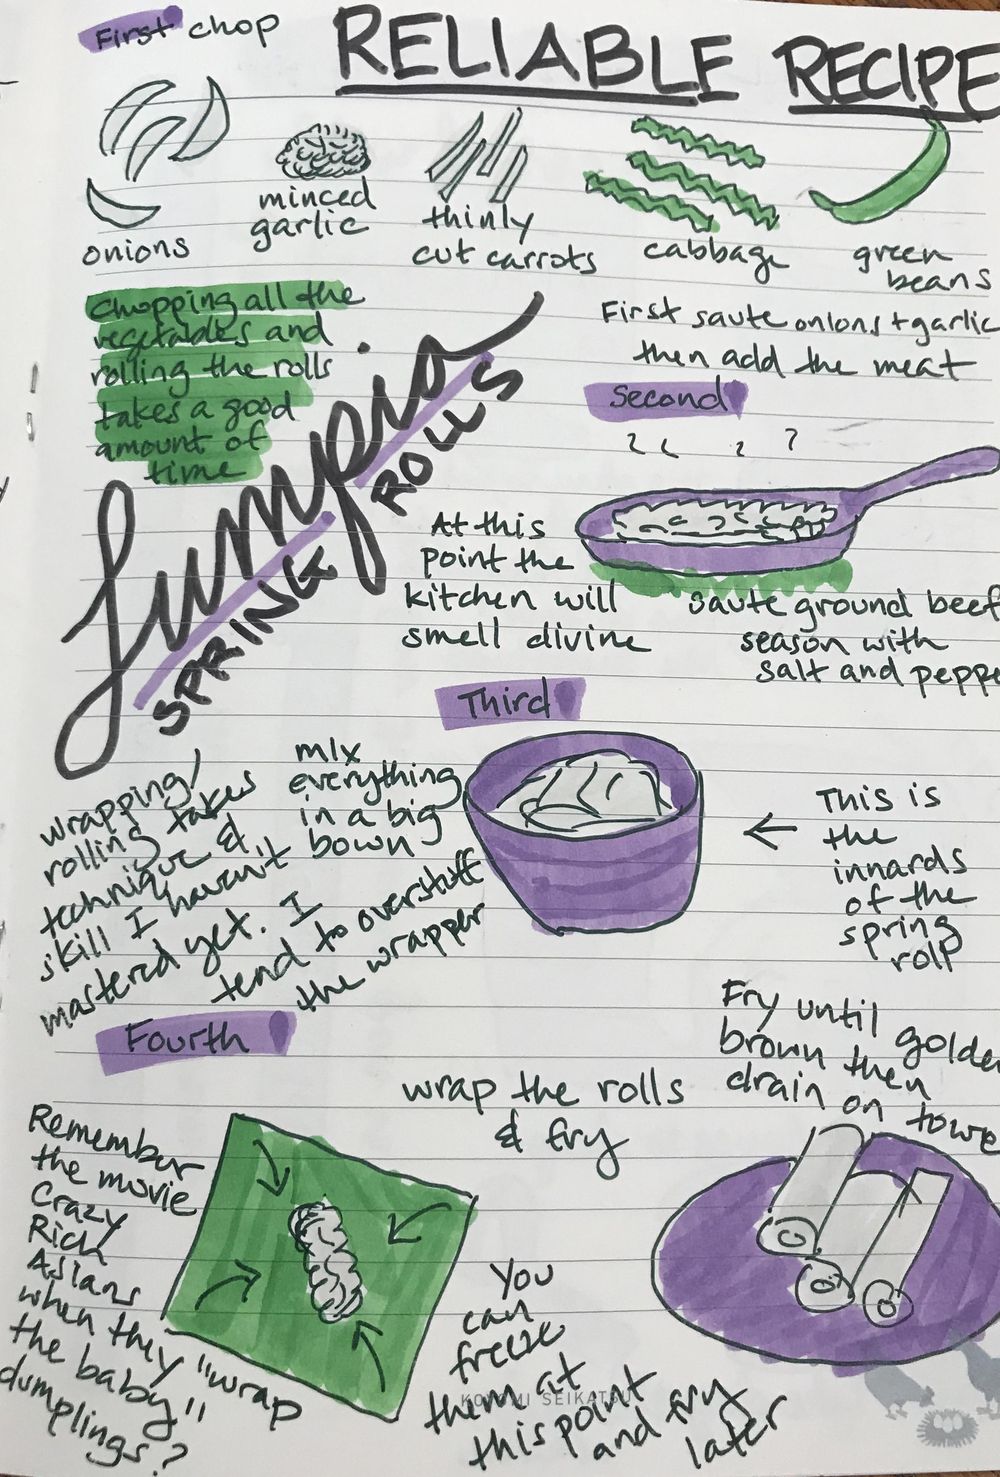 First chop
RELIABLE RECIPE
onions
minced
garlic
thinly
cut carrots
cabbage
green
beans
chopping all the
vegetables and
rolling the rolls
takes a good
amount of
time
Lumpia
SPRING ROLLS
First saute onions + garlic
then add the meat
Second
At this
point the
kitchen will
smell divine
saute ground beef
season with
salt and peppe
Third
mix
everything
in a big
bown
This is
the
innards
of the
spring
roll
wrapping/
rolling takes
technique &
skill I haven't
mastered yet. I
tend to overstuff
the wrapper
Fourth
wrap the rolls
& fry
Fry until
golde
brown then
drain on towe
Remember
the movie
Crazy
Rich
Asians
when they "wrap
the baby"
dumplings?
You
can
freeze
them at
this point
and fry
later
KOTOMI SEIKATSU